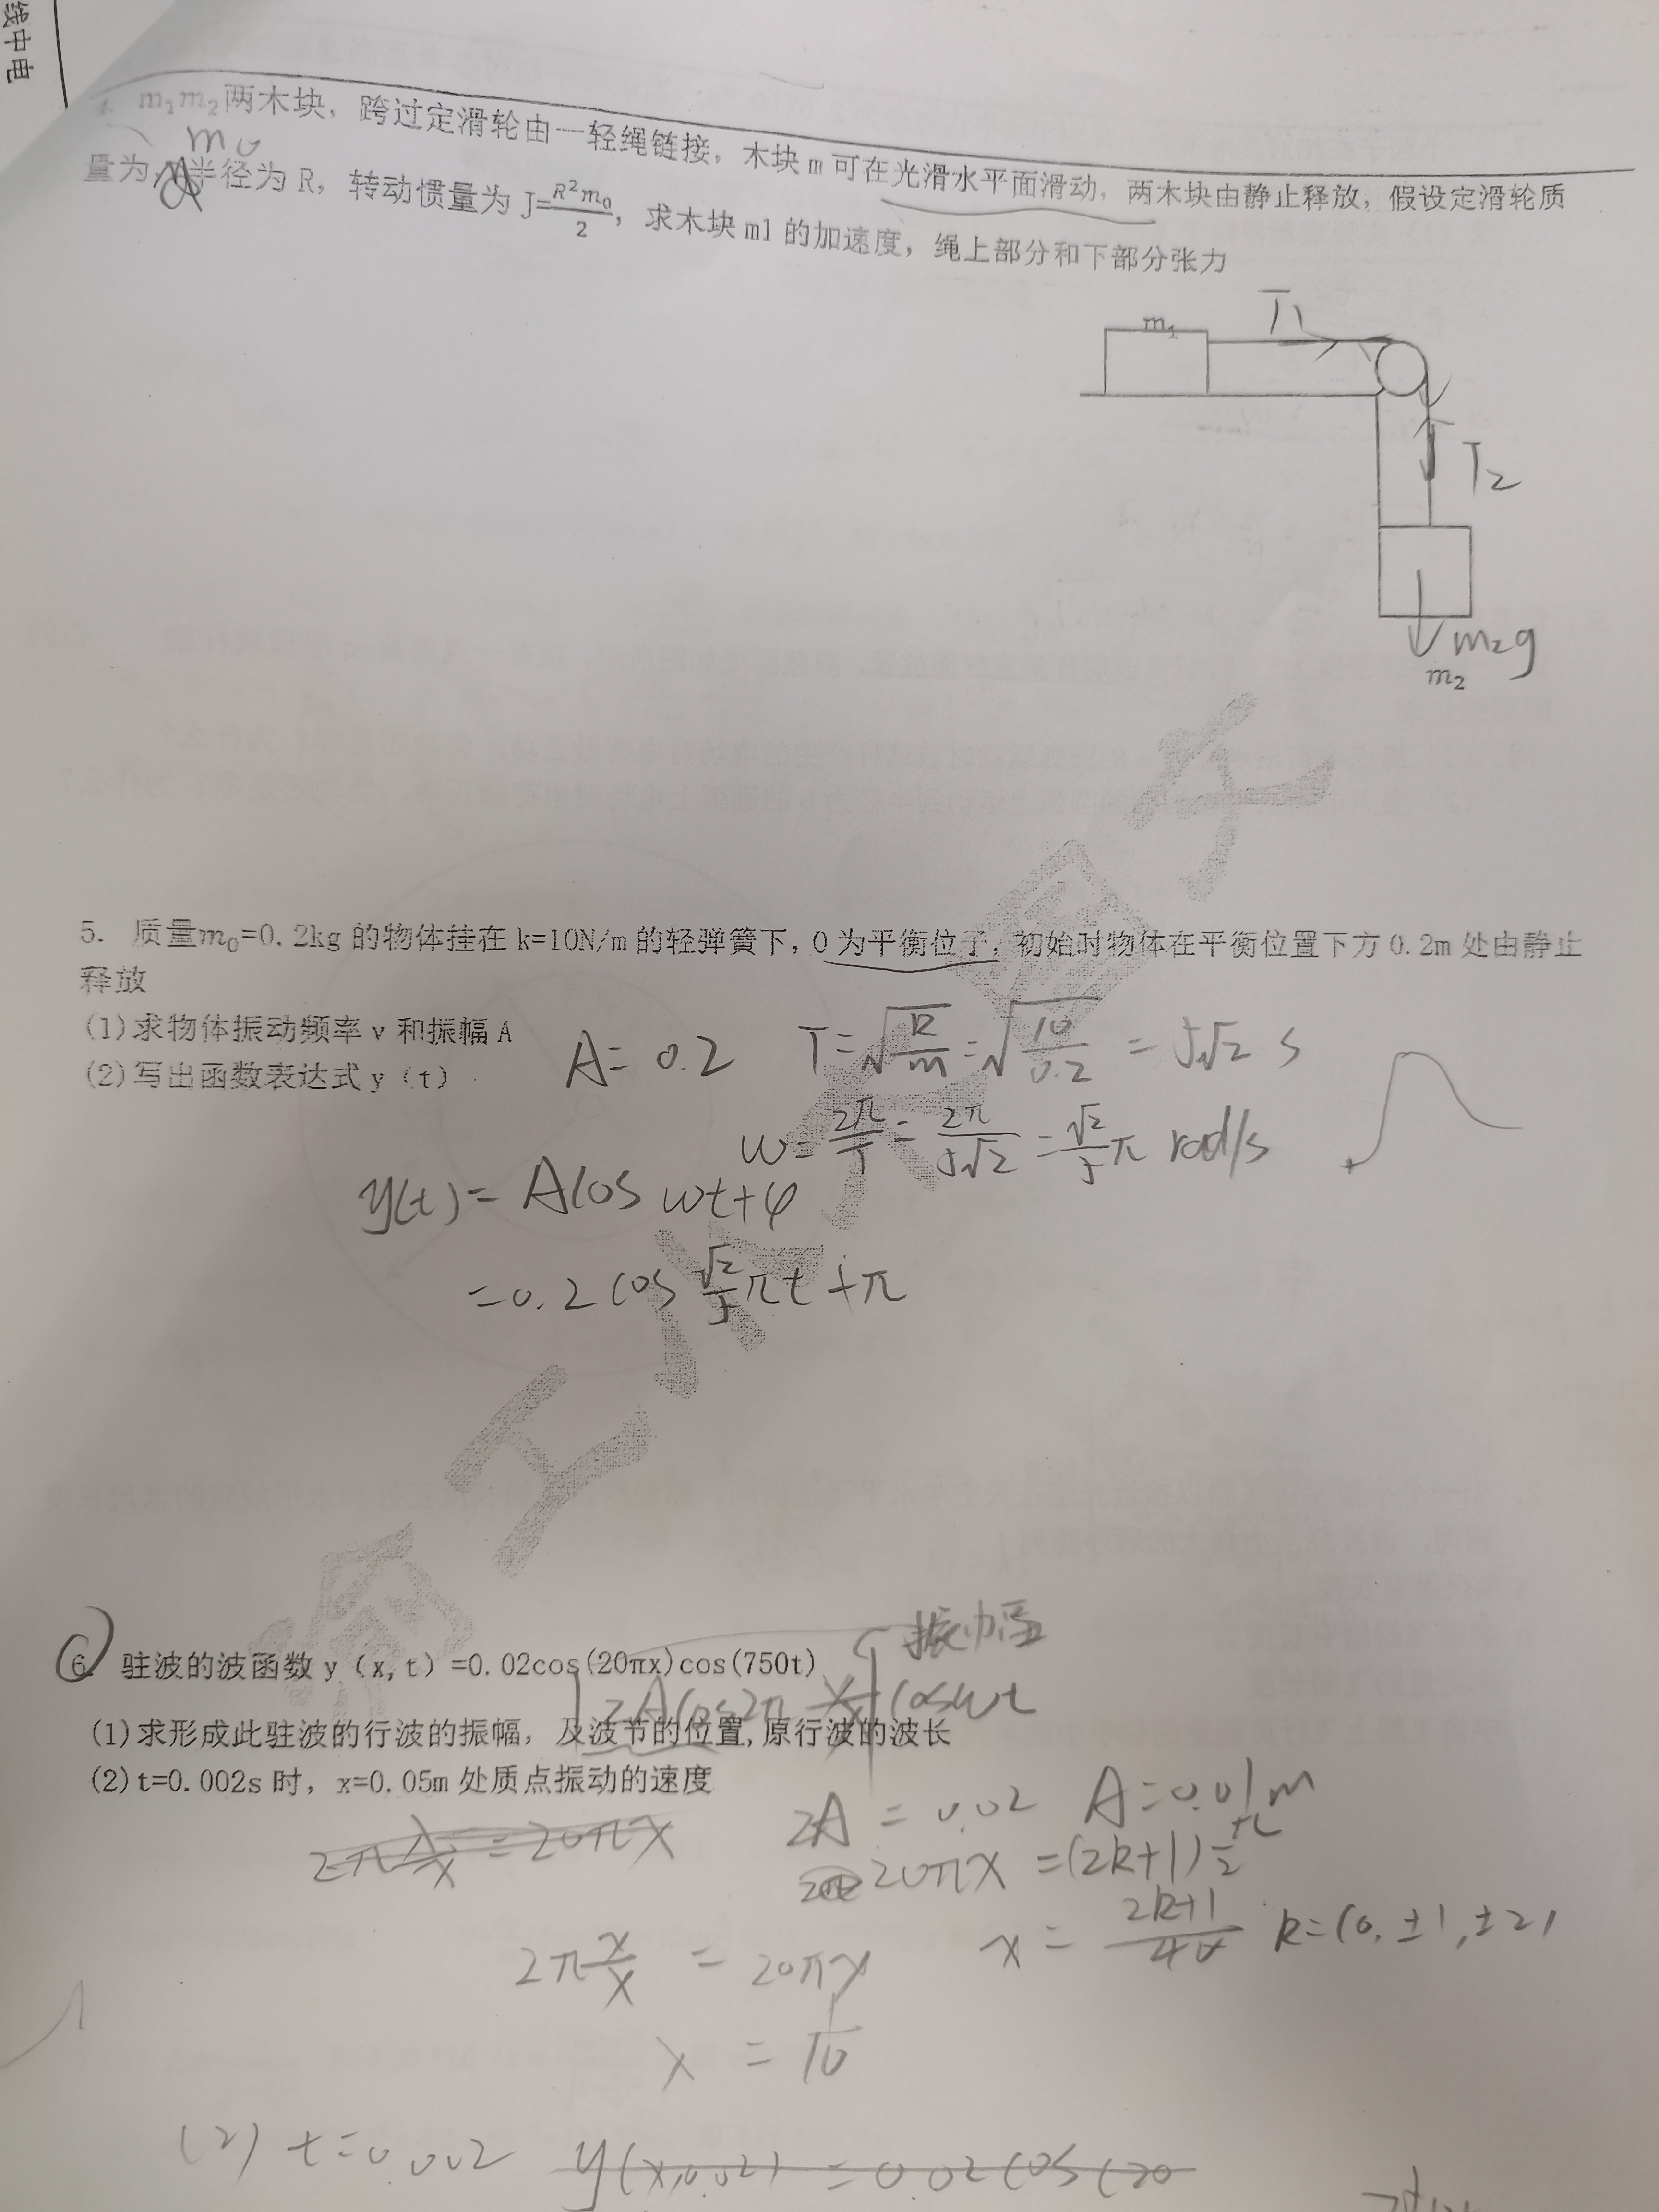 线中电
m₁m₂两木块，跨过定滑轮由一轻绳链接，木块m可在光滑水平面滑动，两木块由静止释放，假设定滑轮质
m₀
量为 半径为R，转动惯量为J=R²m₀/2，求木块m1的加速度，绳上部分和下部分张力
m₁
T₁
T₂
m₂g
m₂
5. 质量m₀=0.2kg的物体挂在k=10N/m的轻弹簧下，O为平衡位于，初始时物体在平衡位置下方0.2m处由静止
释放
(1)求物体振动频率v和振幅A
(2)写出函数表达式y（t）
A=0.2 T=√(k/m)=√(10/0.2)=5√2 s
ω=2π/T=2π/5√2=√2/5 π rad/s
y(t)=Acos ωt+φ
=0.2cos √2/5 πt+π
振幅
6. 驻波的波函数y（x,t）=0.02cos(20πx)cos(750t)
|2Acos2π x/λ|cosωt
(1)求形成此驻波的行波的振幅，及波节的位置,原行波的波长
(2)t=0.002s时，x=0.05m处质点振动的速度
2A=0.02 A=0.01m
2π λ/x=20πx
20πx=(2k+1)π/2
x=2k+1/40 k=(0,±1,±2,
2π x/λ=20πx
λ=1/10
(2) t=0.002 y(x,0.02)=0.02cos(20